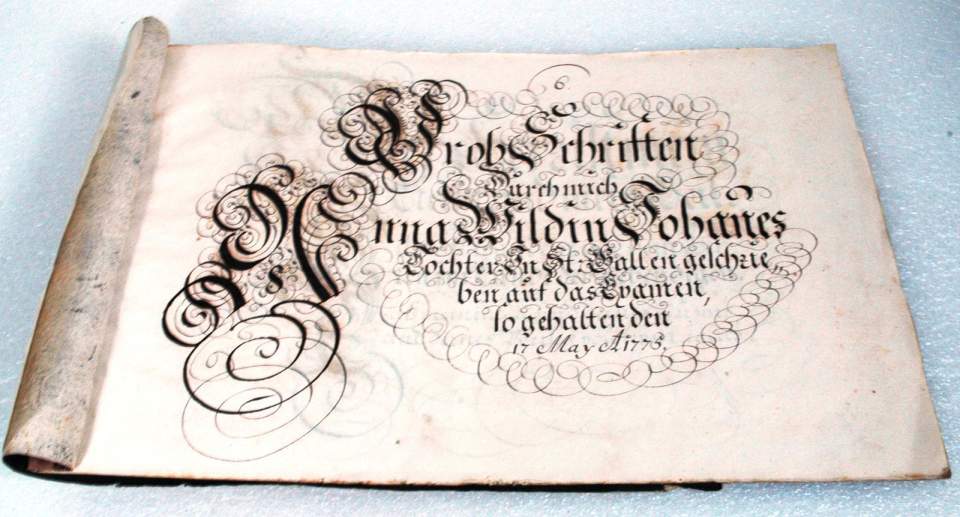 6.
Prob Schrifften
Durch mich
Anna Wildin Johañes
Tochter In St: Gallen geschrie„
ben auf das Examen,
so gehalten den
17 May A 1775.